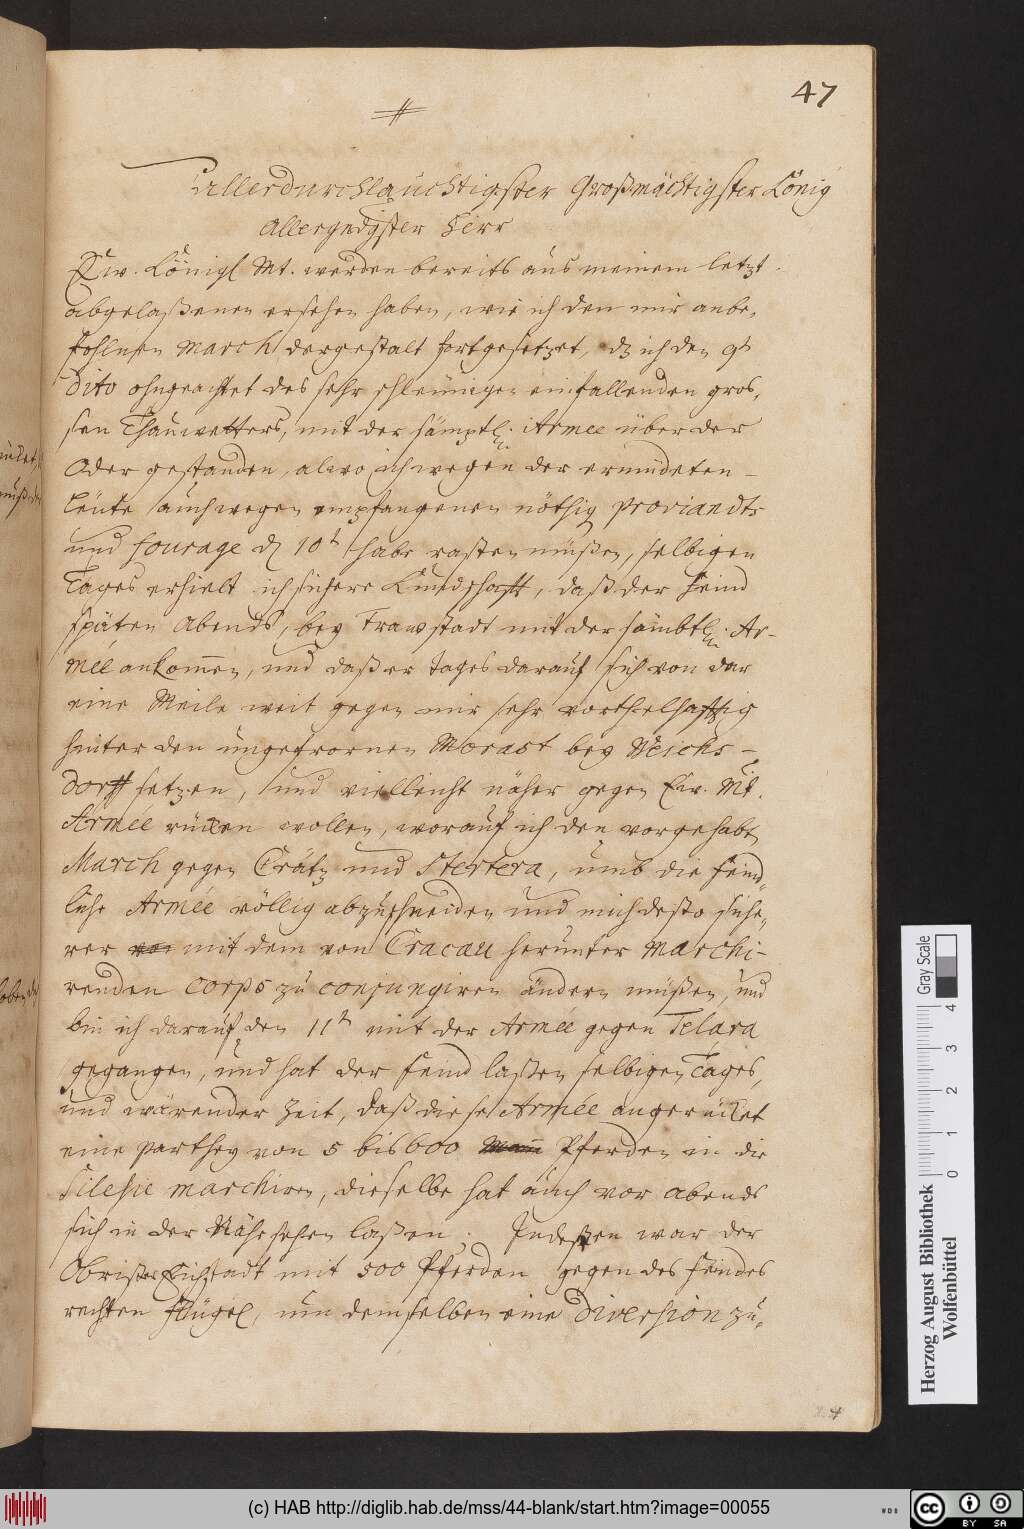 47
Allerdurchlauchtigster Großmächtigster König
Allergndgster Herr
Ew. Königl Mt. werden bereits aus meinem letzt
abgelaßenen ersehen haben, wie ich den mir anbe,
fohlnen March dergestalt fortgesetzet, dz ich den 9t
dito ohngeachtet des sehr schleünigen einfallenden gros,
sen Thauwetters, mit der sämptl. Armee über der
Oder gestanden, alwo ich wegen der ermüdeten
Leüte auch wegen empfangenen nöthig Proviandts
und fourage d 10t habe rasten müßen, selbigen
Tages erhielt ich sichere Kundschafft, daß der Feind
späten Abends, bey Frawstadt mit der sämbtl. Ar-
mée ankommen, und daß er tages darauf sich von dar
eine Meile weit gegen mir sehr vorthelhafftig
hinter den ungefrornen Morast bey
dorff setzen, und vielleicht näher gegen Ew. Mt.
Armée rücken wollen, worauf ich den vorgehabt
March gegen Grätz und, umb die feind,
liche Armée völlig abzuschneiden und mich desto siche,
rer mit dem von Cracau herunter marchi-
renden corps zu conjungiren ändern müßen, und
bin ich darauf den 11t mit der Armée gegen
gegangen, und hat der Feind laßen selbigen Tages,
und wärender Zeit, daß diese Armée angerücket
eine parthey von 5 bis 600 Pferden in die
Silesie marchiren, dieselbe hat auch vor abends
sich in der Nähe sehen laßen. Indeßen war der
Obrister Eichstadt mit 500 Pferden gegen des feindes
rechten Flügel, um demselben eine Diversion zu,
Herzog August Bibliothek
Wolfenbüttel
Gray Scale
0 1 2 3 4
(c) HAB http://diglib.hab.de/mss/44-blank/start.htm?image=00055
WDB
cc BY SA